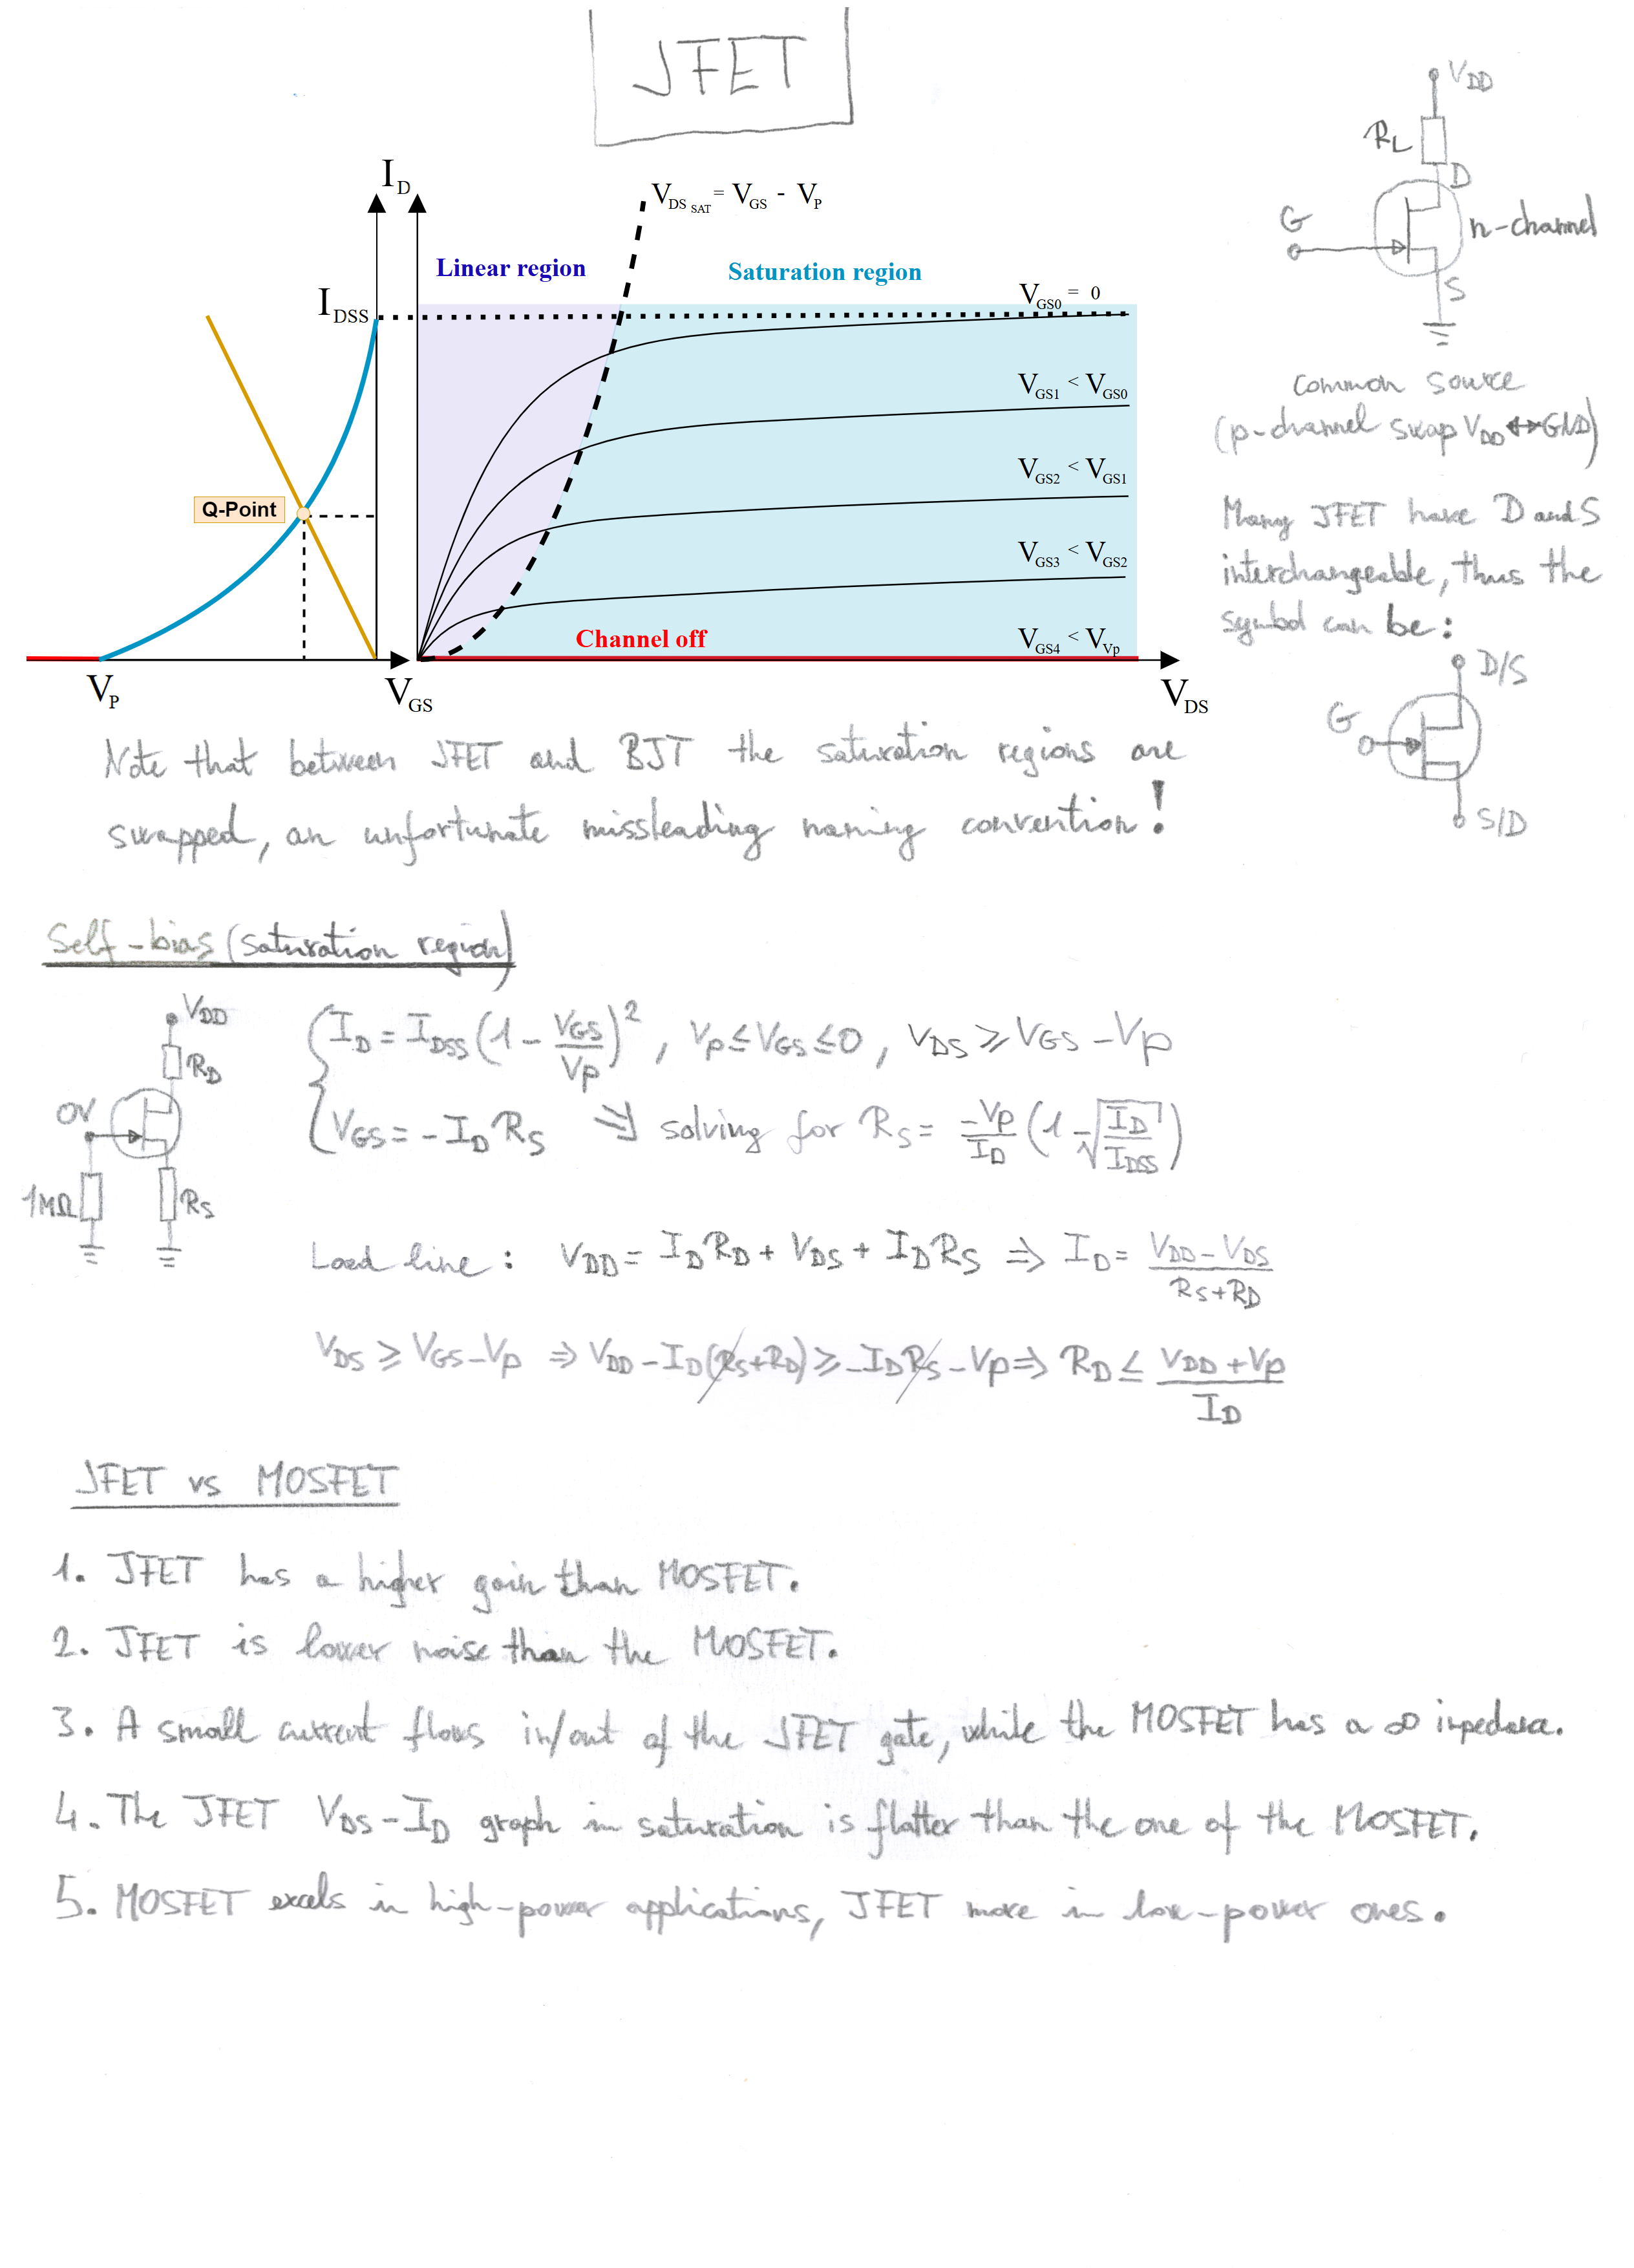 JFET
I_D
I_DSS
V_DS SAT = V_GS - V_P
Linear region
Saturation region
V_GS0 = 0
V_GS1 < V_GS0
V_GS2 < V_GS1
V_GS3 < V_GS2
V_GS4 < V_Vp
Channel off
Q-Point
V_P
V_GS
V_DS
V_DD
R_L
D
G
n-channel
S
common source
(p-channel swap V_DD ↔ GND)
Many JFET have D and S
interchangeable, thus the
symbol can be:
D/S
G
S/D
Note that between JFET and BJT the saturation regions are
swapped, an unfortunate missleading naming convention!
Self-bias (saturation region)
V_DD
R_D
0V
1MΩ
R_S
I_D = I_DSS (1 - V_GS/V_P)^2, V_P ≤ V_GS ≤ 0, V_DS ≥ V_GS - V_P
V_GS = -I_D R_S ⇒ solving for R_S = -V_P/I_D (1 - √(I_D/I_DSS))
Load line: V_DD = I_D R_D + V_DS + I_D R_S ⇒ I_D = (V_DD - V_DS)/(R_S + R_D)
V_DS ≥ V_GS - V_P ⇒ V_DD - I_D(R_S + R_D) ≥ -I_D R_S - V_P ⇒ R_D ≤ (V_DD + V_P)/I_D
JFET vs MOSFET
1. JFET has a higher gain than MOSFET.
2. JFET is lower noise than the MOSFET.
3. A small current flows in/out of the JFET gate, while the MOSFET has a ∞ inpedance.
4. The JFET V_DS-I_D graph in saturation is flatter than the one of the MOSFET.
5. MOSFET excels in high-power applications, JFET more in low-power ones.